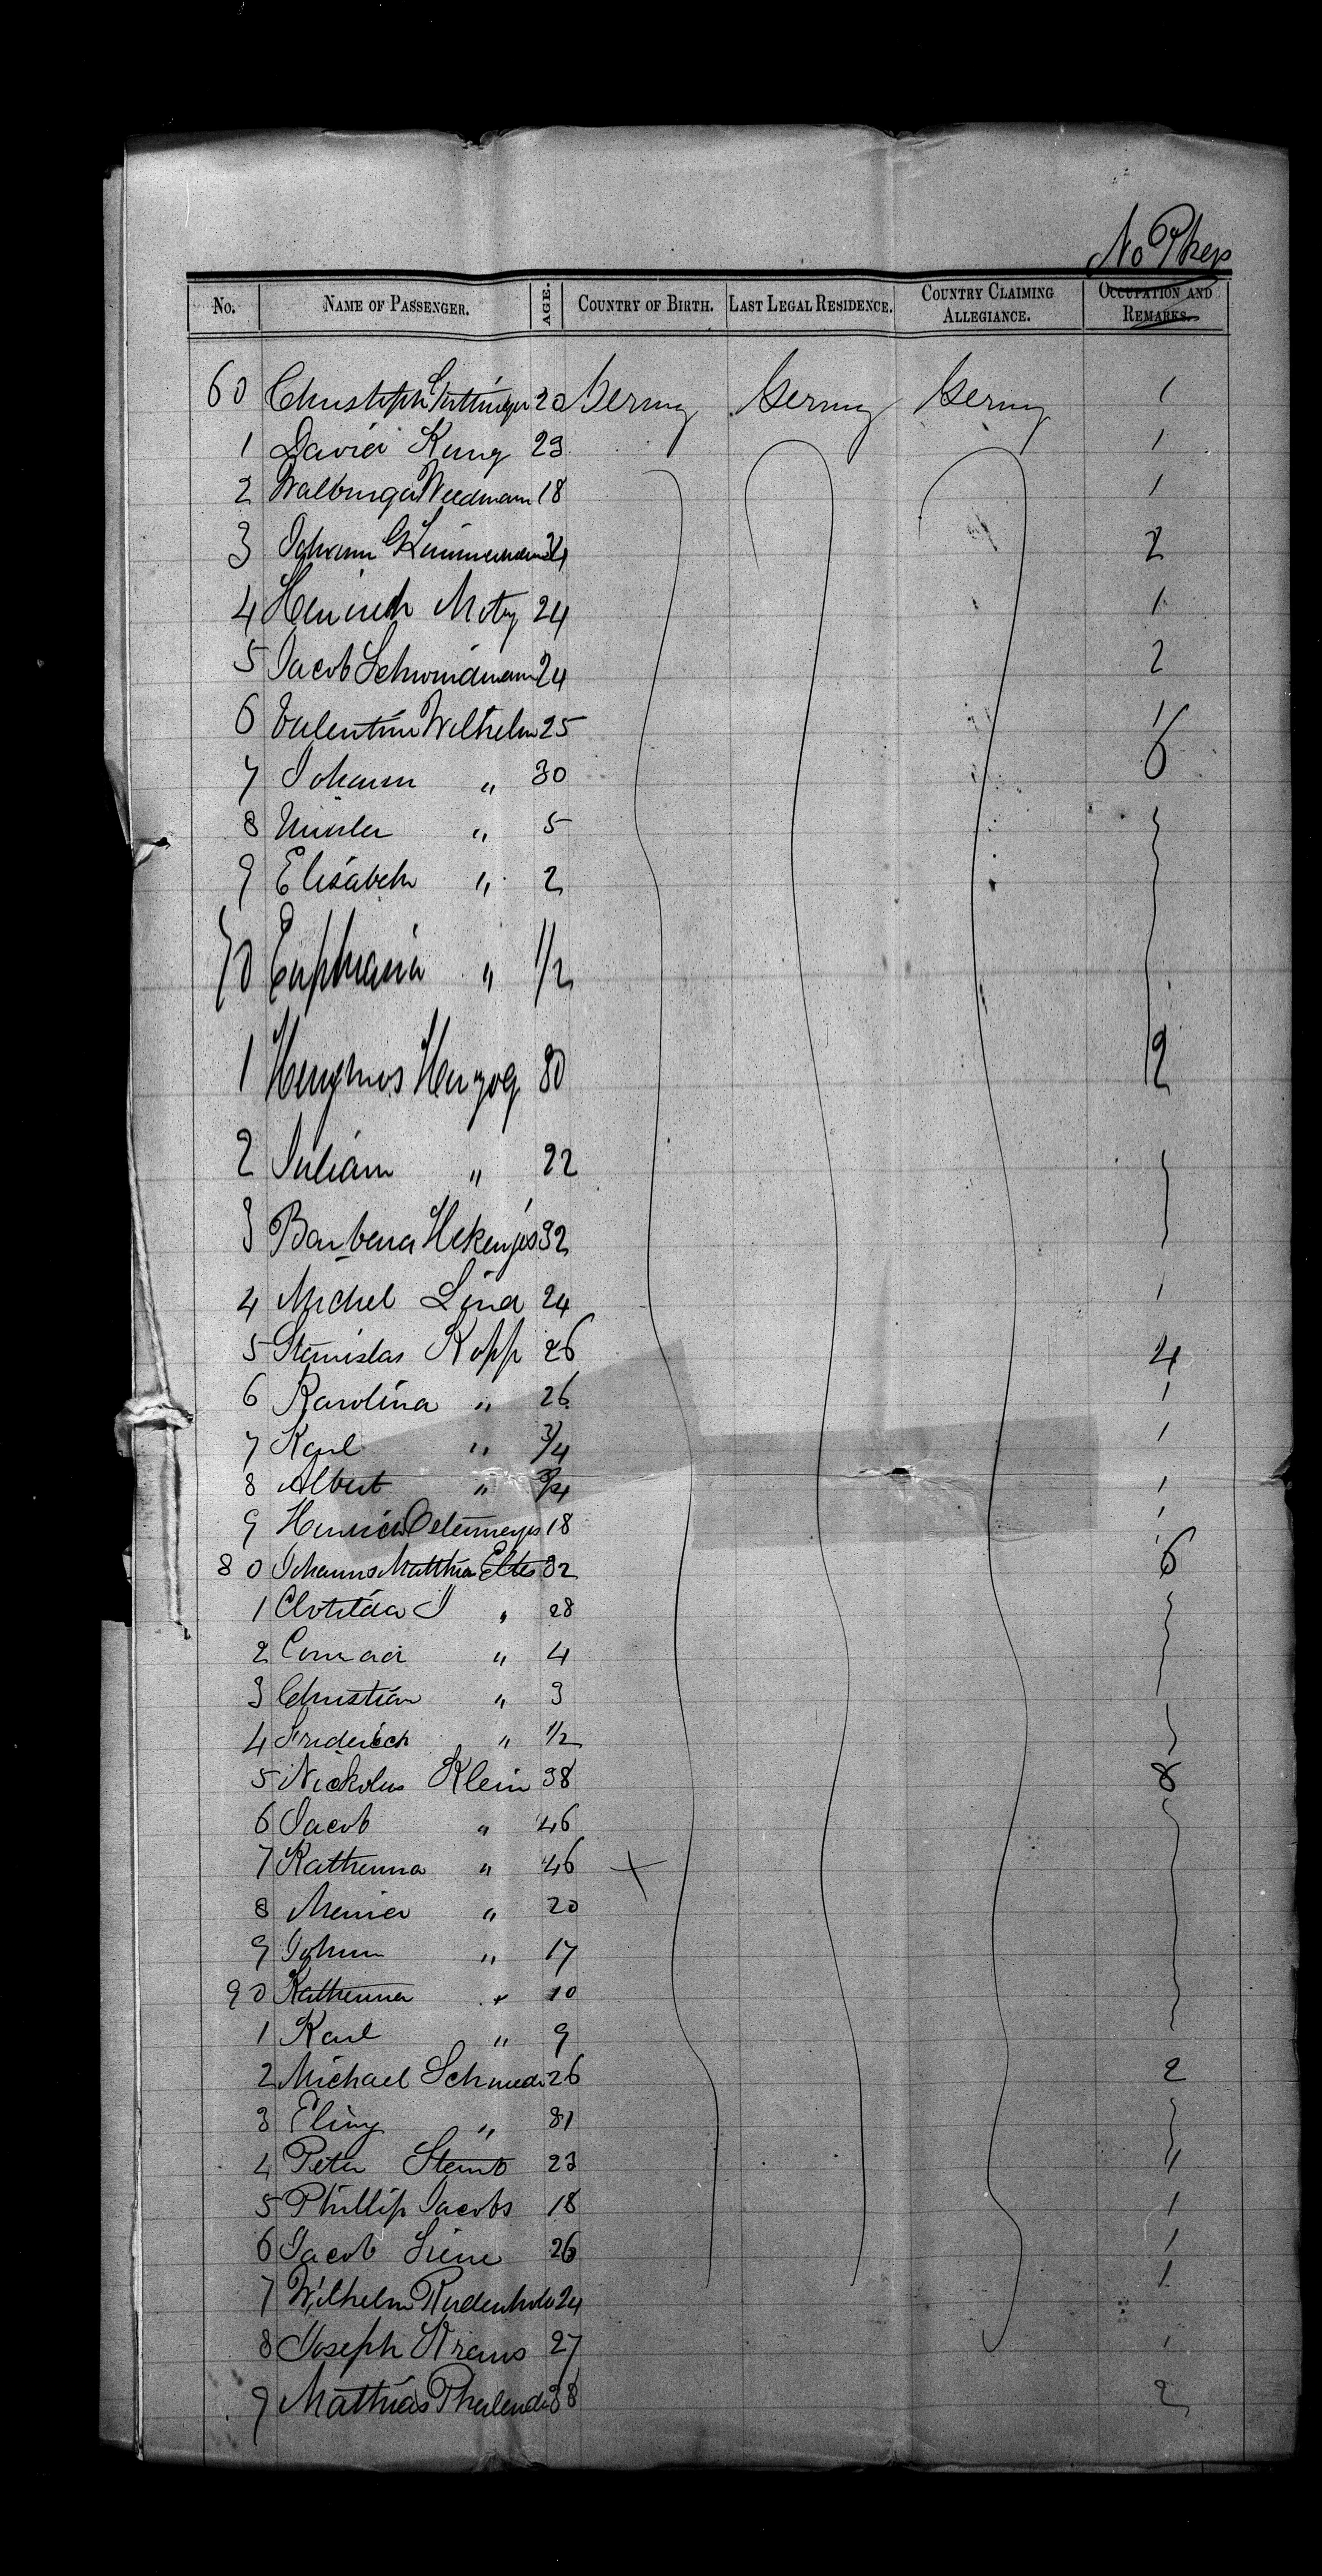 No Pkgs
No. NAME OF PASSENGER. AGE. COUNTRY OF BIRTH. LAST LEGAL RESIDENCE. COUNTRY CLAIMING ALLEGIANCE. OCCUPATION AND REMARKS.
60 Christoph 20 Germy Germy Germy 1
1 David Kung 23 1
2 Walburga Weedmann 18 1
3 Johann 2
4 Heinrich Motz 24 1
5 Jacob Schwindmann 24 2
6 Valentin Wilhelm 25 1
7 Johann " 30 6
8 " 5
9 Elisabeth " 2
70 Euphrasia " 1/2
1 Herzog 30 2
2 Julian " 22
3 Barbera 32
4 Michel Lind 24 1
5 Stanislas Kopp 26 4
6 Karolina " 26 1
7 Karl " 3/4 1
8 Albert " 3/4 1
9 18 1
80 Johanns Matthia Eltes 32 6
1 Clotilda " 28
2 Conrad " 4
3 Christian " 3
4 Friderich " 1/2
5 Nickolus Klein 38 8
6 Jacob " 46
7 Katherina " 46 +
8 " 20
9 Johann " 17
90 Katherina " 10
1 Karl " 9
2 Michael Schmied 26 2
3 " 31
4 Peter 23 "
5 Phillip Jacobs 18 1
6 Jacob 26 1
7 Wilhelm 24 1
8 Joseph Kraus 27 1
9 Mathias 38 2